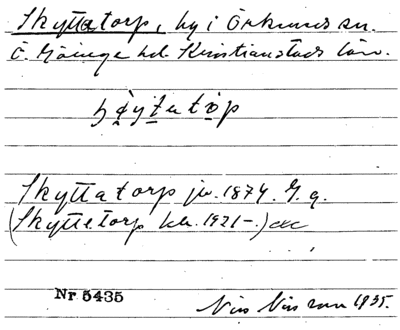 Skyttatorp, by i Örkeneds sn.
Ö. Göinge hd. Kristianstads län.
Skyttatorp jb. 1874. G. a.
(Skyttetorp kb. 1921-.)
Nr 5435
Nils Nilsson 1935.